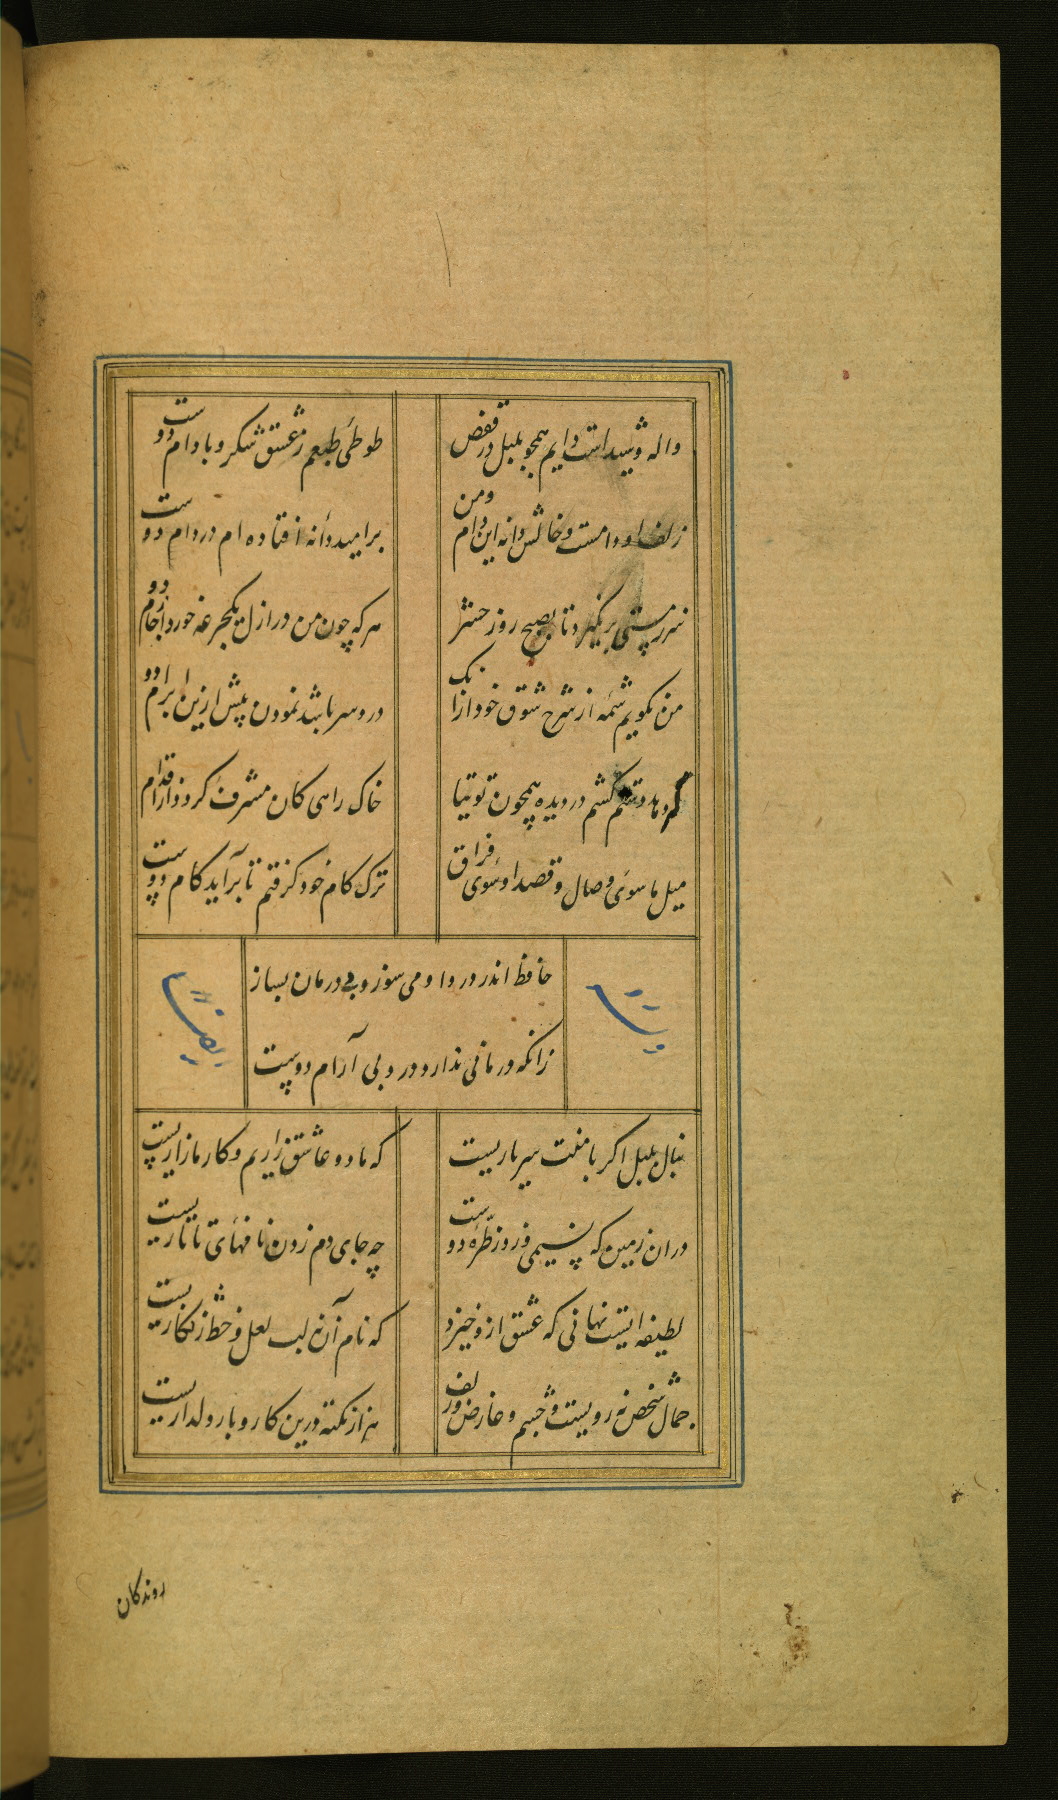 واله و شیداست دایم همچو بلبل در قفض
طوطی طبعم ز عشق شکر و بادام دوست
زلف او دامست و خالش دانه این دام و من
بر امید دانه افتاده ام در دام دوست
سر ز مستی برنگیرد تا بصبح روز حشر
هر که چون من در ازل یکجرعه خورد از جام دو
من نگویم شمه از شرح شوق خود از انک
درد سر باشد نمودن بیش ازین ابرام او
کشم در دیده همچون توتیا
خاک راهی کان مشرف کردد از اقدام
میل ما سوی وصال و قصد او سوی فراق
ترک کام خود کرفتم تا برآید کام دوست
حافظ اندر درد او می سوز و بی درمان بساز
زانکه درمانی ندارد درد بی آرام دوست
بنال بلبل اکر با منت سر یاریست
که ما دو عاشق زاریم و کار ما زاریست
دران زمین که نسیمی وزد ز طرّه دوست
چه جای دم زدن نافهای تاتاریست
لطیفه ایست نهانی که عشق ازو خیزد
که نام آن نه لب لعل و خط زنکاریست
جمال شخص نه رویست و چشم و عارض و زلف
هزار نکته درین کار و بار دلداریست
روندکان